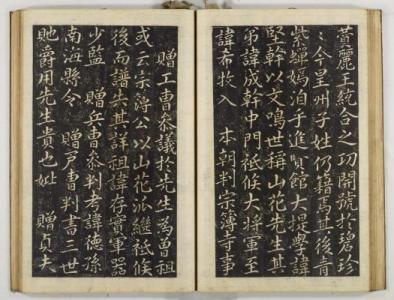 贊麗王統合之功開號於碧珍
々今星州子姓仍籍焉其後有
紫蟬嫣洎子進賢館大提學諱
堅幹以文鳴世稱山花先生其
第諱成幹中門祗候大將軍生
諱希牧入 本朝判宗簿寺事
贈工曹參議於先生爲曾祖
或云宗簿公以山花派繼祗候
後而譜失其詳祖諱存實軍器
少監 贈兵曹參判考諱德孫
南海縣令 贈戶曹判書三世
貤爵用先生貴也妣 贈貞夫